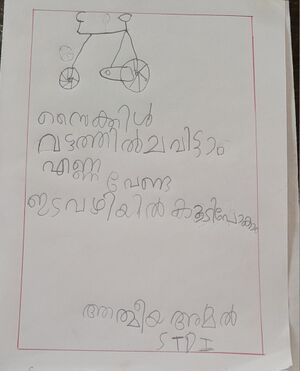 സൈക്കിൾ
വട്ടത്തിൽ ചവിട്ടാം
എണ്ണ
വേണ്ട
ഇടവഴിയിൽ കൂടിപോകാം
ആത്മീയ അമൽ
STD I